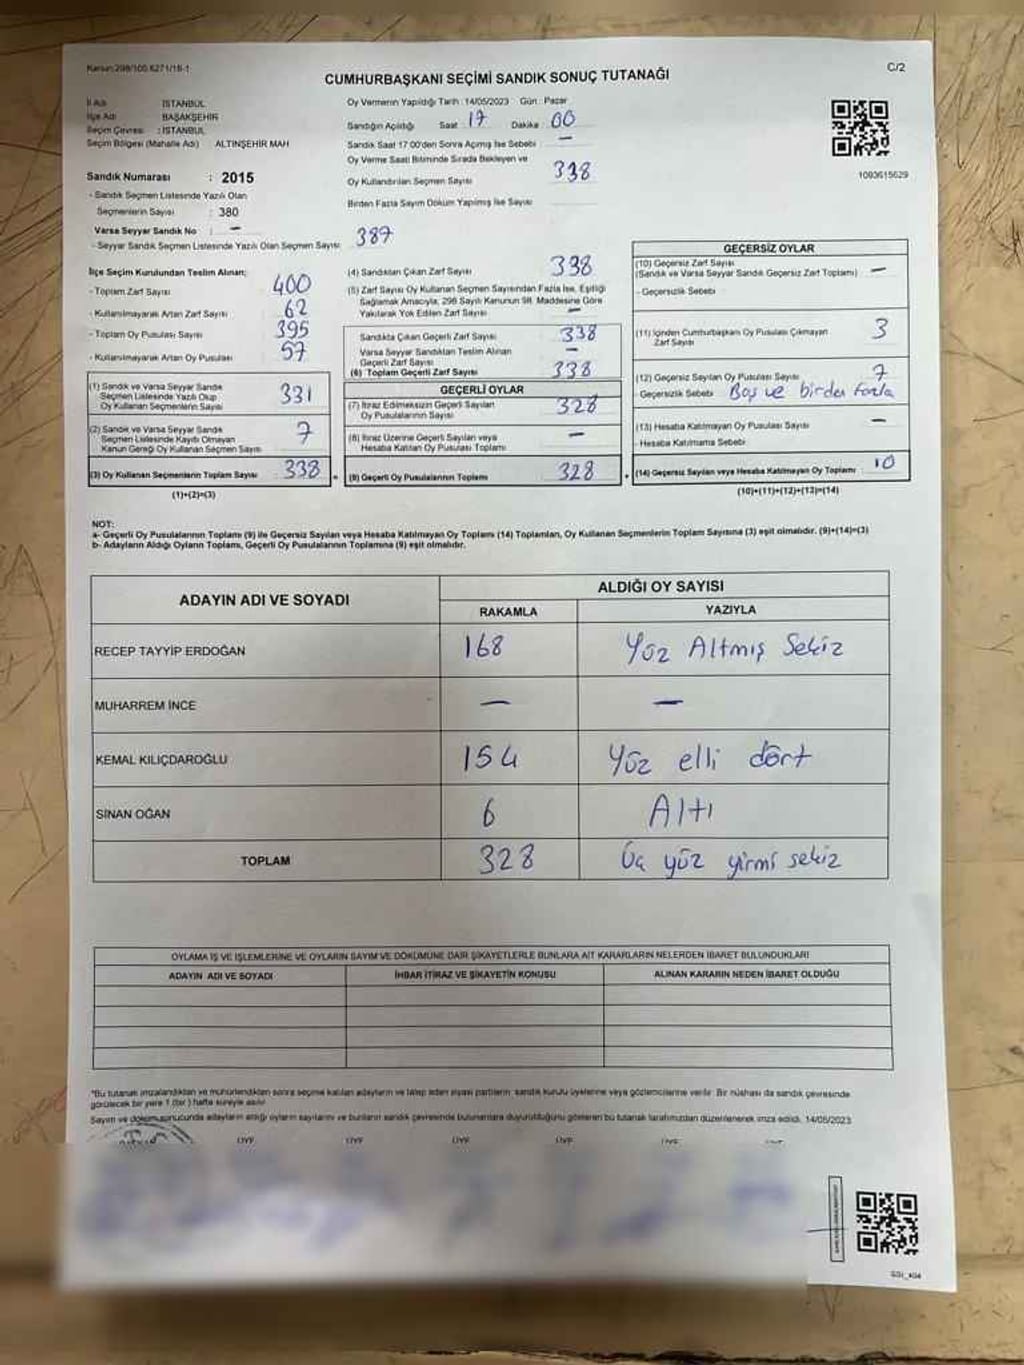 Kanun:298/105,6271/18-1
CUMHURBAŞKANI SEÇİMİ SANDIK SONUÇ TUTANAĞI
C/2
İl Adı : İSTANBUL
İlçe Adı : BAŞAKŞEHİR
Seçim Çevresi : İSTANBUL
Seçim Bölgesi (Mahalle Adı) ALTINŞEHİR MAH
Sandık Numarası : 2015
- Sandık Seçmen Listesinde Yazılı Olan
Seçmenlerin Sayısı : 380
Varsa Seyyar Sandık No : —
- Seyyar Sandık Seçmen Listesinde Yazılı Olan Seçmen Sayısı 387
Oy Vermenin Yapıldığı Tarih :14/05/2023 Gün : Pazar
Sandığın Açıldığı Saat 17 Dakika 00
Sandık Saat 17:00'den Sonra Açımış İse Sebebi —
Oy Verme Saati Bitiminde Sırada Bekleyen ve
Oy Kullandırılan Seçmen Sayısı 338
Birden Fazla Sayım Döküm Yapılmış İse Sayısı
1093615629
İlçe Seçim Kurulundan Teslim Alınan;
- Toplam Zarf Sayısı 400
- Kullanılmayarak Artan Zarf Sayısı 62
- Toplam Oy Pusulası Sayısı 395
- Kullanılmayarak Artan Oy Pusulası 57
(1) Sandık ve Varsa Seyyar Sandık
Seçmen Listesinde Yazılı Olup
Oy Kullanan Seçmenlerin Sayısı 331
(2) Sandık ve Varsa Seyyar Sandık
Seçmen Listesinde Kayıtlı Olmayan
Kanun Gereği Oy Kullanan Seçmen Sayısı 7
(3) Oy Kullanan Seçmenlerin Toplam Sayısı 338
(1)+(2)=(3)
(4) Sandıktan Çıkan Zarf Sayısı 338
(5) Zarf Sayısı Oy Kullanan Seçmen Sayısından Fazla İse, Eşitliği
Sağlamak Amacıyla, 298 Sayılı Kanunun 98. Maddesine Göre
Yakılarak Yok Edilen Zarf Sayısı —
Sandıkta Çıkan Geçerli Zarf Sayısı 338
Varsa Seyyar Sandıktan Teslim Alınan
Geçerli Zarf Sayısı —
(6) Toplam Geçerli Zarf Sayısı 338
GEÇERLİ OYLAR
(7) İtiraz Edilmeksizin Geçerli Sayılan
Oy Pusulalarının Sayısı 328
(8) İtiraz Üzerine Geçerli Sayılan veya
Hesaba Katılan Oy Pusulası Toplamı —
(9) Geçerli Oy Pusulalarının Toplamı 328
GEÇERSİZ OYLAR
(10) Geçersiz Zarf Sayısı
(Sandık ve Varsa Seyyar Sandık Geçersiz Zarf Toplamı) —
- Geçersizlik Sebebi
(11) İçinden Cumhurbaşkanı Oy Pusulası Çıkmayan
Zarf Sayısı 3
(12) Geçersiz Sayılan Oy Pusulası Sayısı 7
- Geçersizlik Sebebi Boş ve birden fazla
(13) Hesaba Katılmayan Oy Pusulası Sayısı —
- Hesaba Katılmama Sebebi
(14) Geçersiz Sayılan veya Hesaba Katılmayan Oy Toplamı 10
(10)+(11)+(12)+(13)=(14)
NOT:
a- Geçerli Oy Pusulalarının Toplamı (9) ile Geçersiz Sayılan veya Hesaba Katılmayan Oy Toplamı (14) Toplamları, Oy Kullanan Seçmenlerin Toplam Sayısına (3) eşit olmalıdır. (9)+(14)=(3)
b- Adayların Aldığı Oyların Toplamı, Geçerli Oy Pusulalarının Toplamına (9) eşit olmalıdır.
ADAYIN ADI VE SOYADI
ALDIĞI OY SAYISI
RAKAMLA YAZIYLA
RECEP TAYYİP ERDOĞAN 168 Yüz Altmış Sekiz
MUHARREM İNCE — —
KEMAL KILIÇDAROĞLU 154 Yüz elli dört
SİNAN OĞAN 6 Altı
TOPLAM 328 Üç yüz yirmi sekiz
OYLAMA İŞ VE İŞLEMLERİNE VE OYLARIN SAYIM VE DÖKÜMÜNE DAİR ŞİKAYETLERLE BUNLARA AİT KARARLARIN NELERDEN İBARET BULUNDUKLARI
ADAYIN ADI VE SOYADI İHBAR İTİRAZ VE ŞİKAYETİN KONUSU ALINAN KARARIN NEDEN İBARET OLDUĞU
*Bu tutanak imzalandıktan ve mühürlendikten sonra seçime katılan adayların ve talep eden siyasi partilerin sandık kurulu üyelerine veya gözlemcilerine verilir. Bir nüshası da sandık çevresinde
görülecek bir yere 1 (bir ) hafta süreyle asılır.
Sayım ve dökümü sonucunda adayların aldığı oyların sayılarını ve bunların sandık çevresinde bulunanlara duyurulduğunu gösteren bu tutanak tarafımızdan düzenlenerek imza edildi. 14/05/2023
ÜYE ÜYE ÜYE ÜYE ÜYE